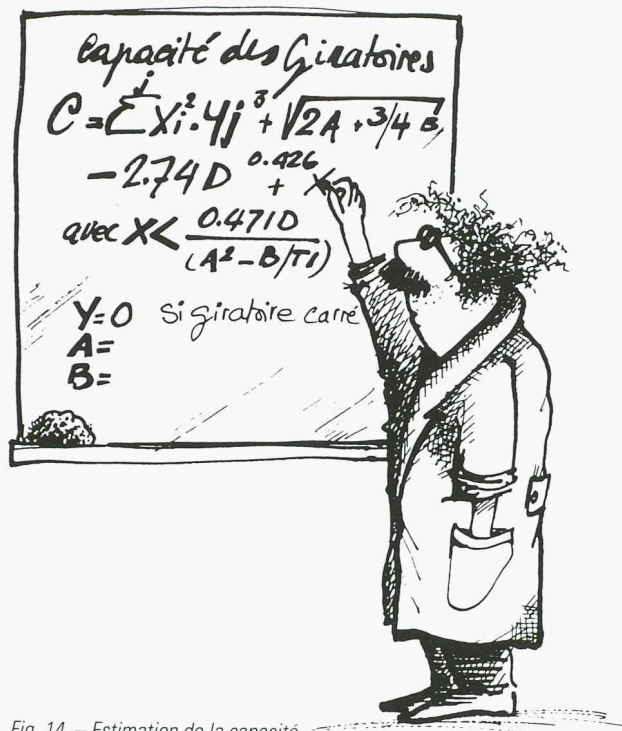 Capacité des Giratoires
C = Σ^j Xi². Yj³ + √2A + 3/4 B
- 2.74 D^0.426 + X
avec X < 0.471D / (A² - B/T1)
Y=0 si giratoire carré
A=
B=
Fig. 14. – Estimation de la capacité